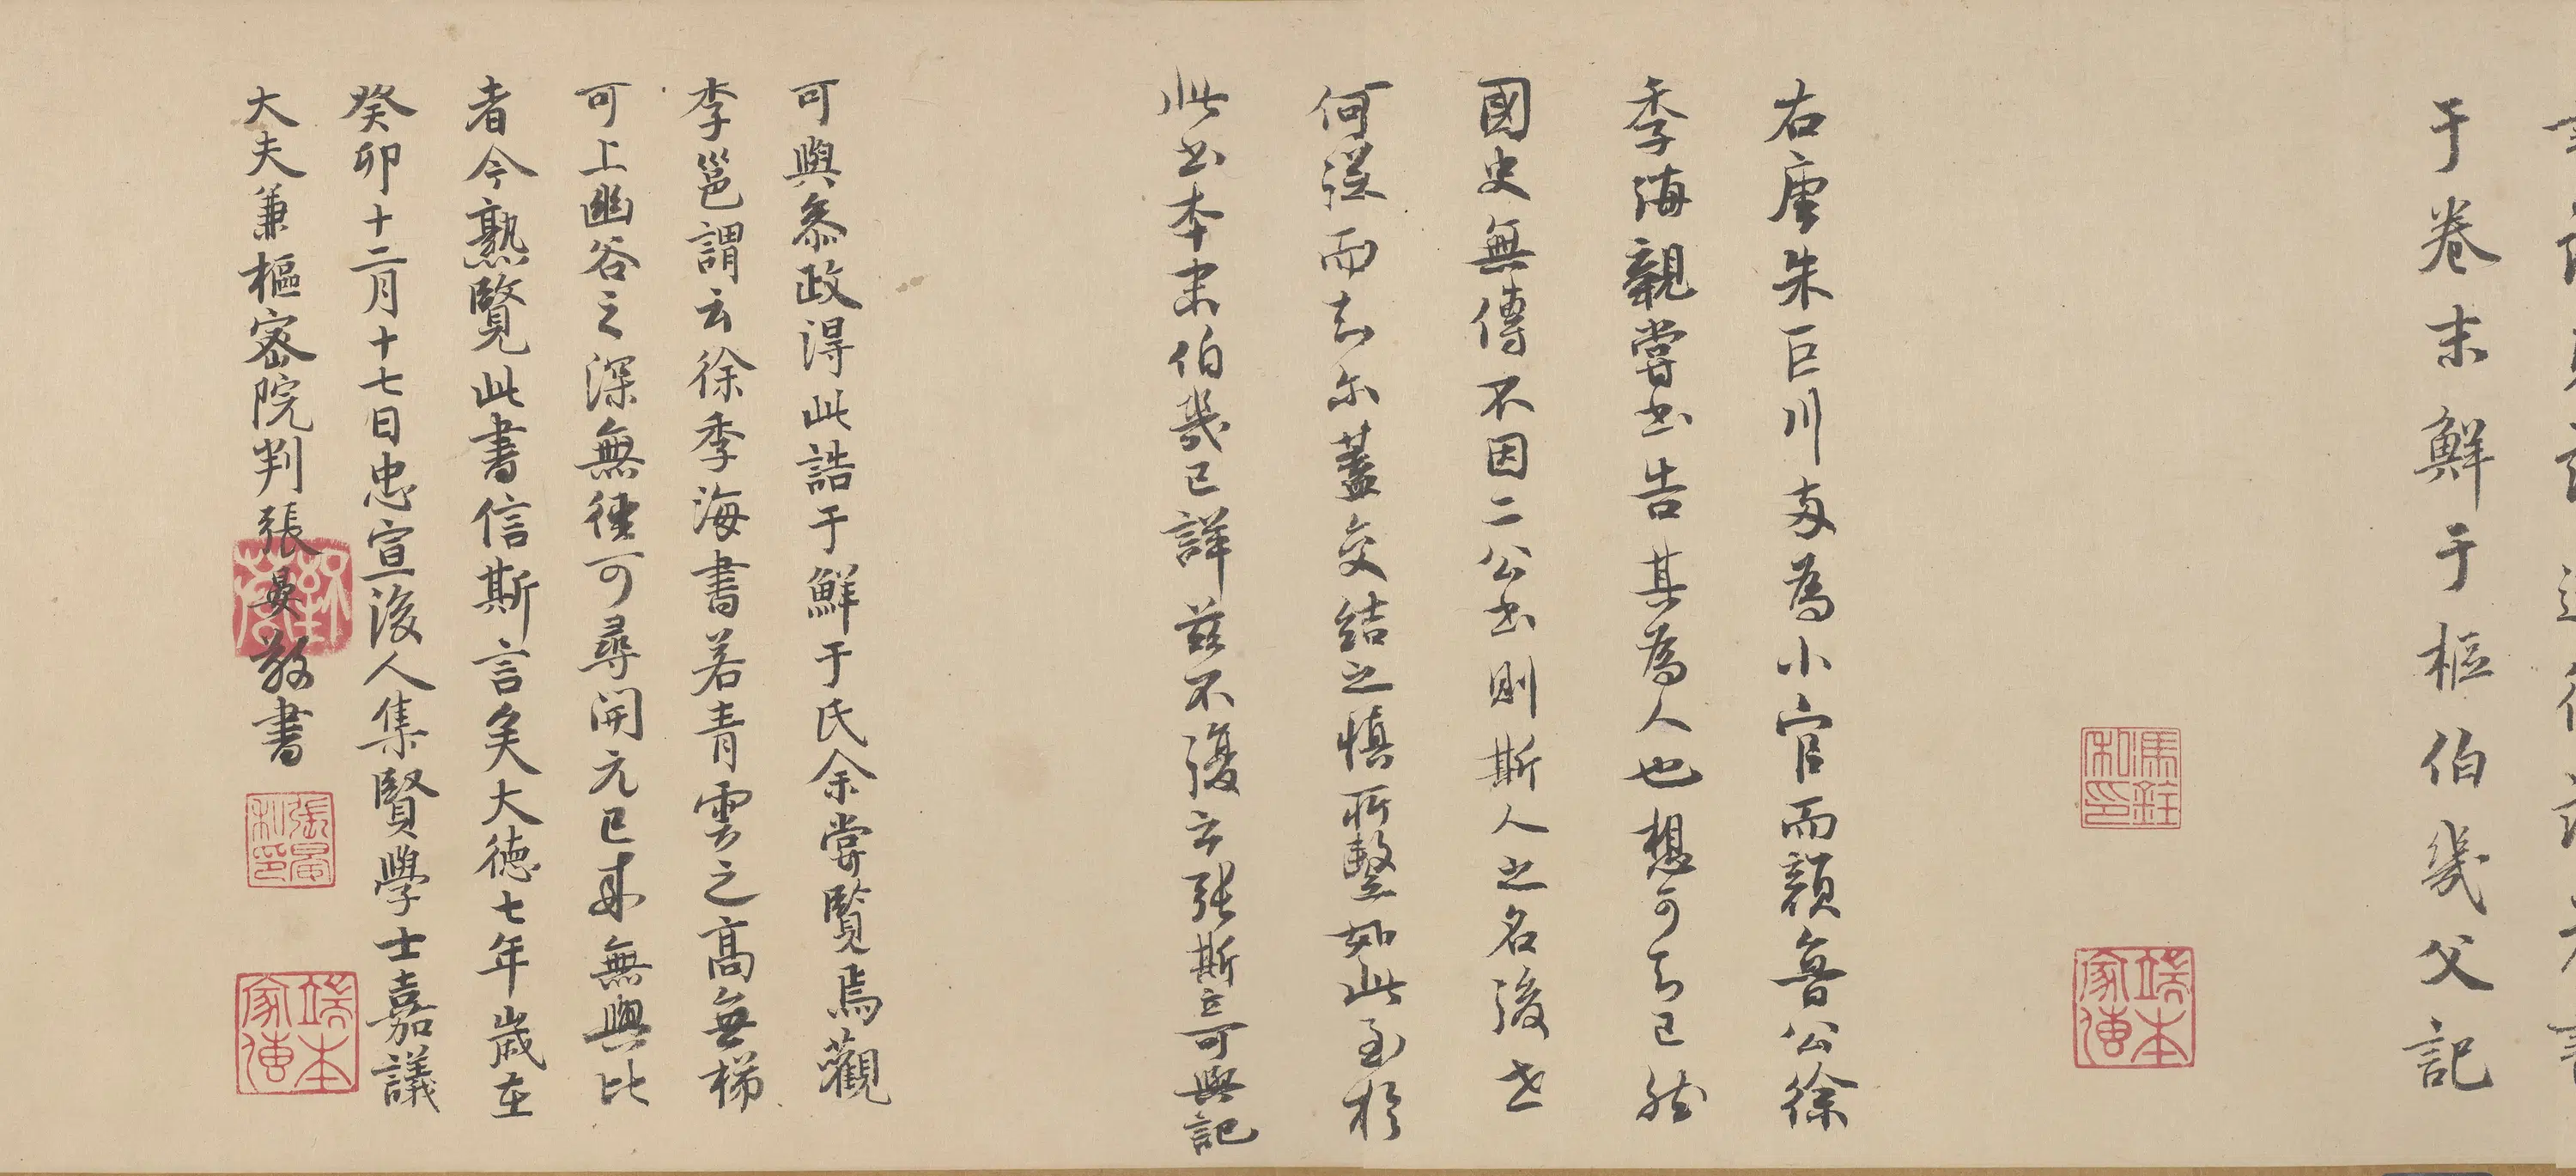 于卷末鮮于樞伯幾父記
右唐朱巨川両為小官而顏魯公徐
季海親嘗書告其為人也想可知已然
國史無傳不因二公書則斯人之名後世
何從而知尔蓋交結之慎所繫如此至於
此書本末伯幾已詳茲不復云張斯立可與記
可與叅政得此誥于鮮于氏余嘗覧焉觀
李邕謂云徐季海書若青雲之高無梯
可上幽谷之深無徑可尋開元已來無與比
者今熟覧此書信斯言矣大德七年歲在
癸卯十二月十七日忠宣後人集賢學士嘉議
大夫兼樞密院判張晏敬書
張晏私印
端本家傳
端本家傳